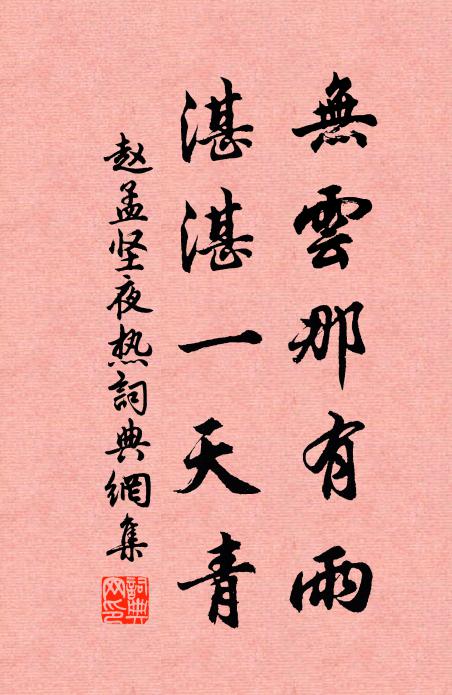 無雲那有雨
湛湛一天青
赵孟坚夜热詞典網集
詞典网印